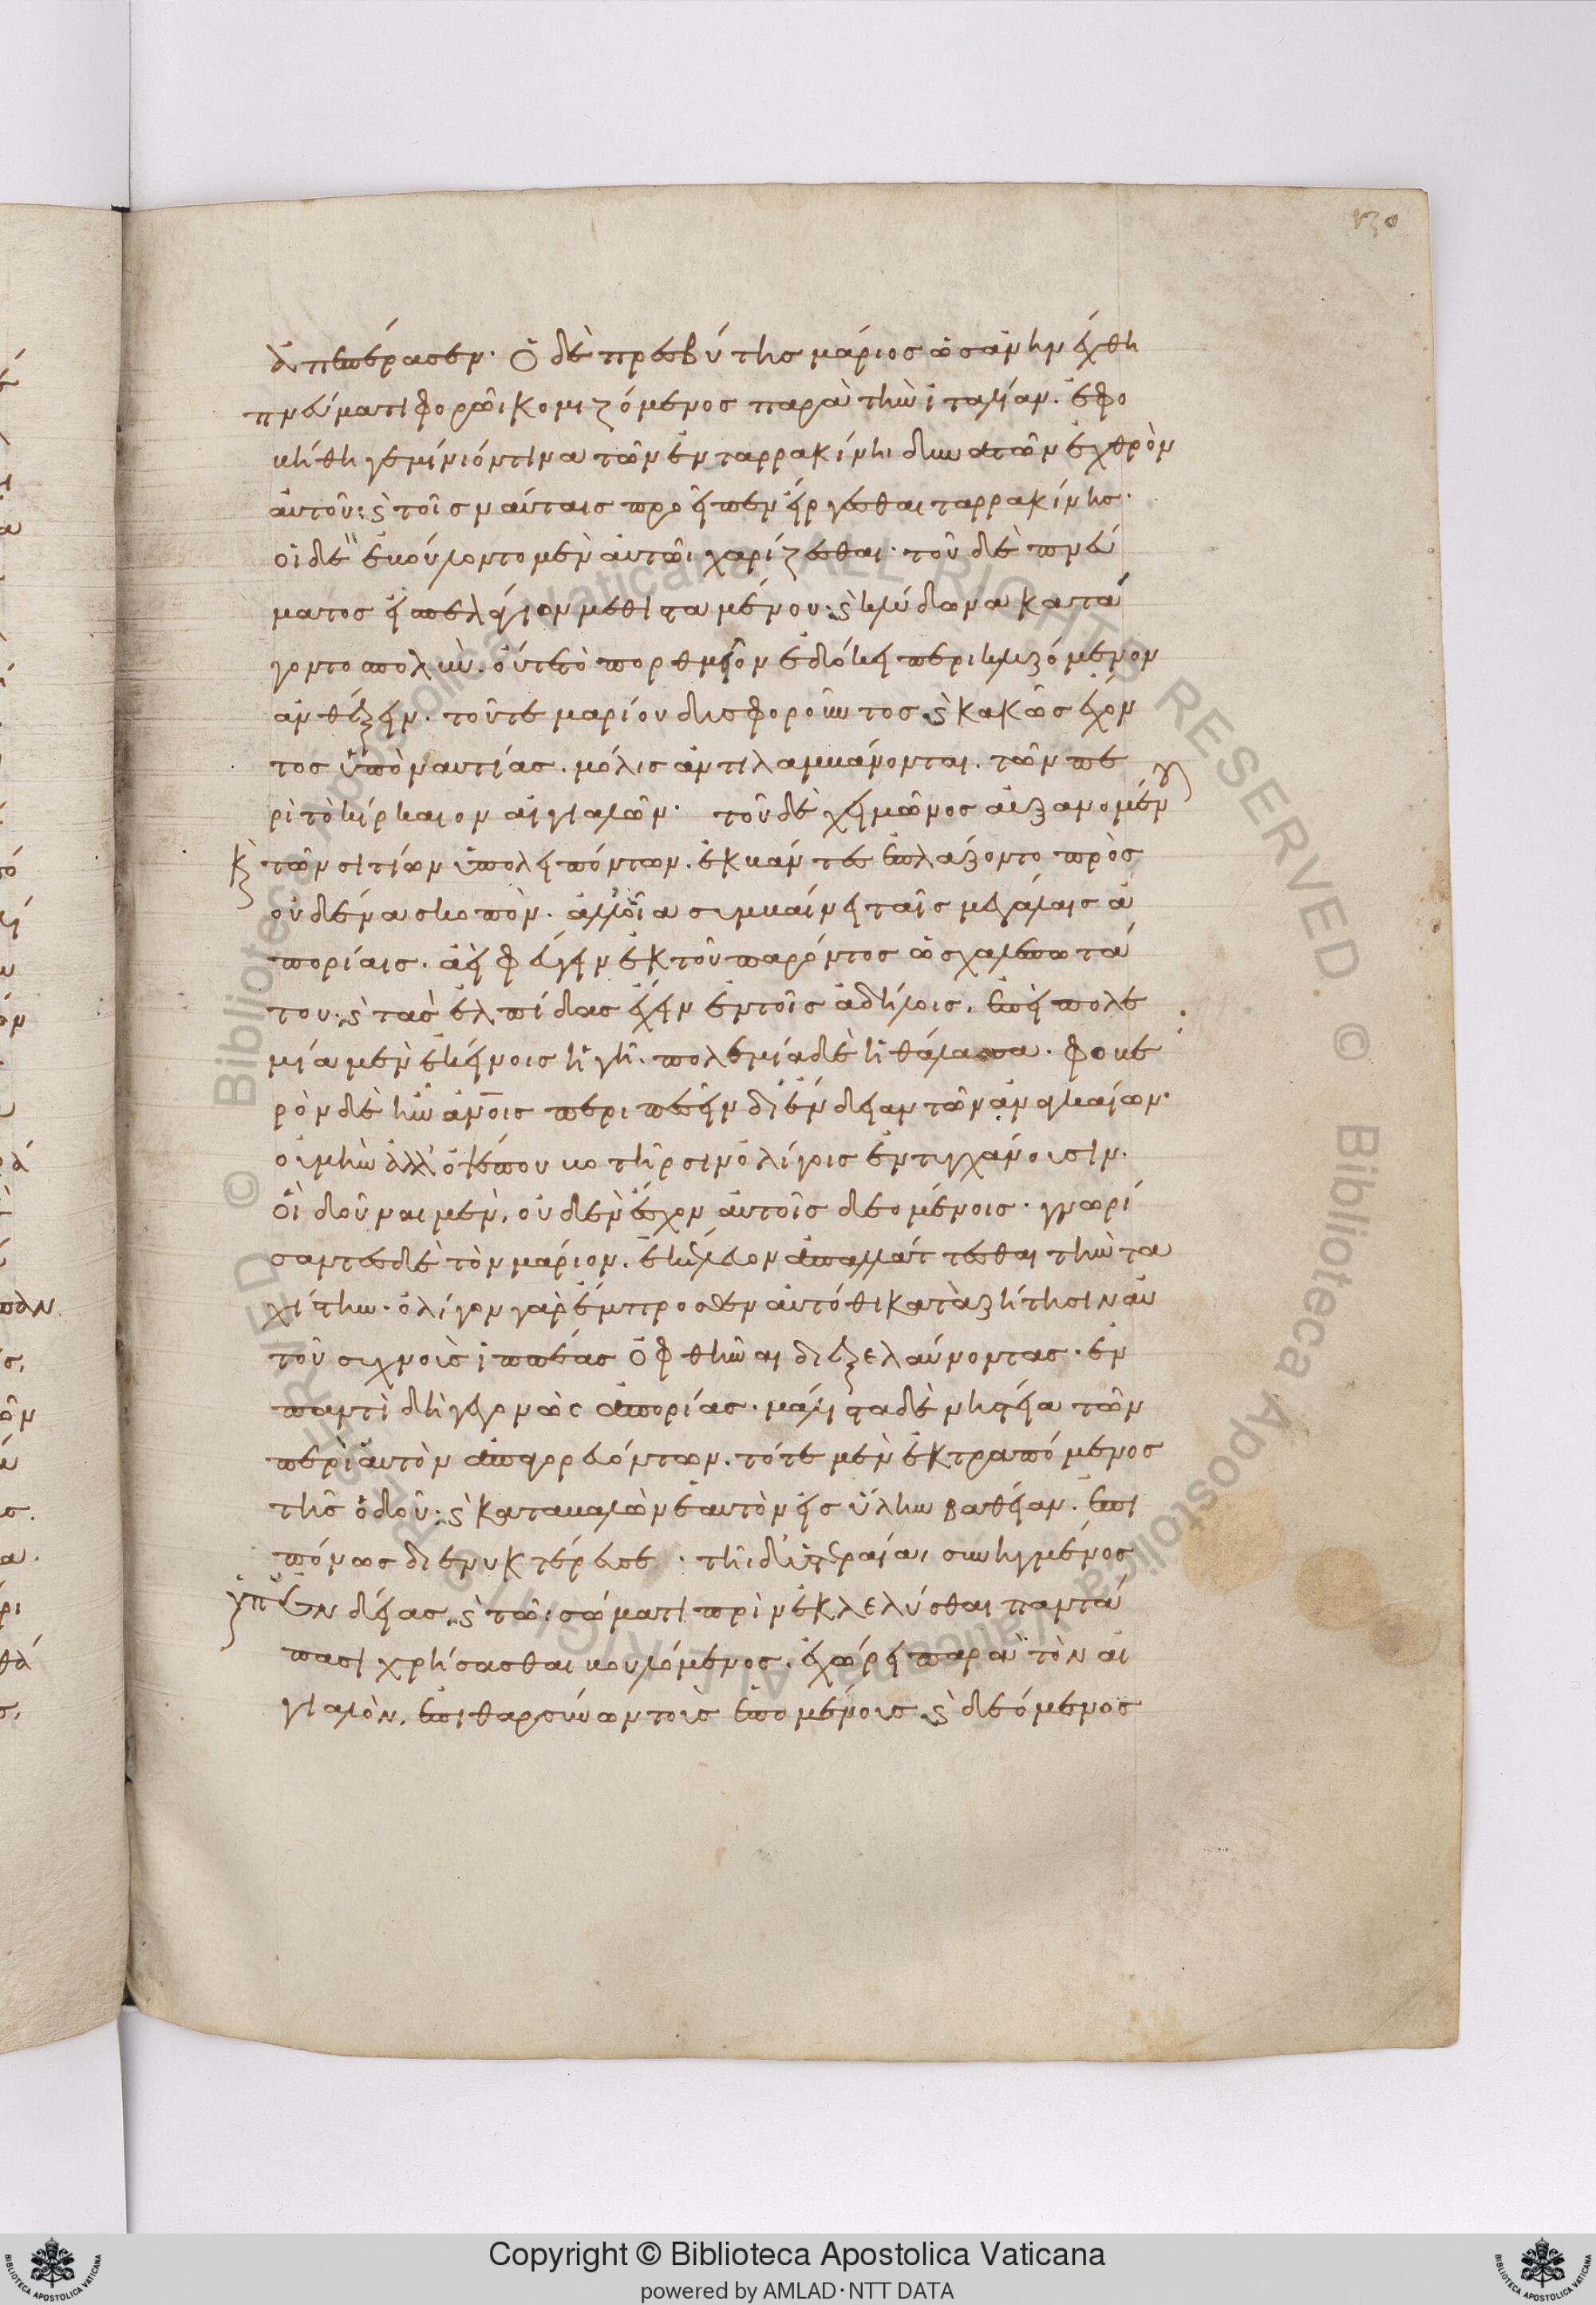 ἀπεπέρασεν· Ὁ δὲ πρεσβύτης μάριος ὡς ἀνηνέχθη
πνεύματι φορῶι κομιζόμενος παρὰ τὴν ἰταλίαν. ἐφο
βήθη γεμίνιόν τινα τῶν ἐν ταρρακίνηι δυνατῶν ἐχθρὸν
αὐτοῦ: καὶ τοῖς ναύταις προεῖπεν εἴργεσθαι ταρρακίνης·
οἱ δὲ ἐβούλοντο μὲν αὐτῶι χαρίζεσθαι· τοῦ δὲ πνεύ
ματος εἰ πελάγιον μεθισταμένου: καὶ κλύδωνα κατά
γοντο πολὺν. οὔτε τὸ πορθμεῖον ἐδόκει περικλυζόμενον
ἀνθέξειν. τοῦ τε μαρίου δυσφοροῦντος καὶ κακῶς ἔχον
τος ὑπὸ ναυτίας. μόλις ἀντιλαμβάνονται. τῶν πε
ρὶ τὸ κίρκαιον αἰγιαλῶν· τοῦ δὲ χειμῶνος αὐξανομένου
κ(αὶ) τῶν σιτίων ὑπολειπόντων. ἐκβάντες ἐπλάζοντο πρὸς
οὐδένα σκοπὸν. ἀλλ' οἷα συμβαίνει ταῖς μεγάλαις ἀ
πορίαις. ἀεὶ φεύγειν ἐκ τοῦ παρόντος ὡς χαλεπωτά
του: καὶ τὰς ἐλπίδας ἔχειν ἐν τοῖς ἀδήλοις. ἐπεὶ πολε
μία μὲν ἐκείνοις ἡ γῆ. πολεμία δὲ ἡ θάλασσα. φοβε
ρὸν δὲ ἦν ἀνοις περιπεσεῖν δι' ἔνδειαν τῶν ἀναγκαίων·
οὐ μὴν ἀλλ' ὀψέ που βοτῆρσιν ὀλίγοις ἐντυγχάνουσιν.
Οἳ δοῦναι μὲν, οὐδὲν ἔσχον αὐτοῖς δεομένοις· γνωρί
σαντες δὲ τὸν μάριον. ἐκέλευον ἀπαλλάττεσθαι τὴν τα
χίστην. ὀλίγον γὰρ ἔμπροσθεν αὐτόθι κατὰ ζήτησιν αὐ
τοῦ συχνοὺς ἱππέας ὀφθῆναι διεξελαύνοντας. ἐν
παντὶ δὴ γεγονὼς ἀπορίας. μάλιστα δὲ νηστεία τῶν
περὶ αὐτὸν ἀπαγορευόντων. τότε μὲν ἐκτραπόμενος
τῆς ὁδοῦ: καὶ καταβαλὼν ἑαυτὸν εἰς ὕλην βαθεῖαν. ἐπι
πόνως διενυκτέρευσε. τῆι δ' ὑστεραίαι συνηγμένος
ὑπ' Ἐνδείας, καὶ τῶι σώματι πρὶν ἐκλελύσθαι παντά
πασι χρήσασθαι βουλόμενος. ἐχώρει παρὰ τὸν αἰ
γιαλὸν. ἐπιθαρσύνων τοὺς ἑπομένους καὶ δεόμενος
Copyright © Biblioteca Apostolica Vaticana
powered by AMLAD·NTT DATA